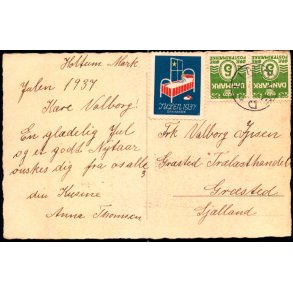 Holtum Mark
Julen 1937
Kære Valborg!
En glædelig Jul
og et godt Nytaar
ønskes dig fra os alle
3
din Kusine
Anna Thomsen
JULEN 1937
DANMARK
5
ØRE
POSTFÆRGE
DANMARK
5
ØRE
Frk Valborg
Græsted Trælasthandel
Græsted
Sjælland